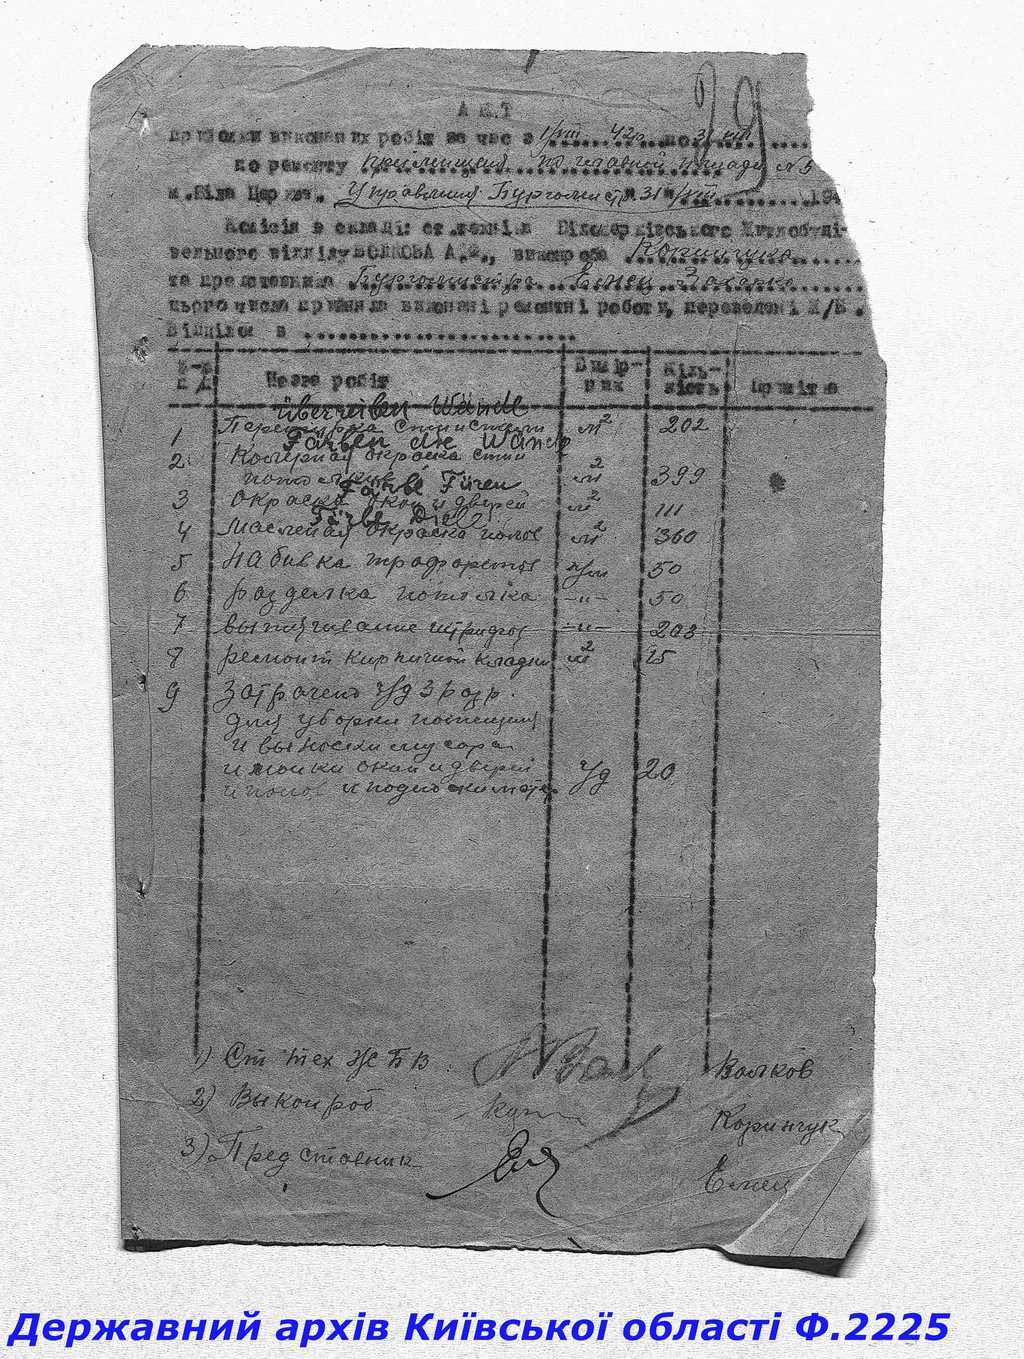 29
А К Т
приймки виконаних робіт за час з 1/VIII 42р. по 31/VIII
по ремонту помещения по главной площади №5
м.Біла Церква. Управления Бургомистра 31/VIII 194
Комісія в складі: ст.техніка Білоцерківського Житлобуді-
вельного відділу ВОЛКОВА А.Ф., виконроба Коринчука
та представника Бургомистра Елнец Захарко
цього числа прийняла виконані ремонтні роботи, переведені Ж/Б.
Відділом в
Назва робіт
Вимір-
ник
Кіль-
кість
Примітка
überreiben Wände
1 Перетирка стін стелі м² 202
Färben die Wände
2 Колерная окраска стін
потолков м² 399
Farbe Türen
3 Окраска окон и дверей м² 111
Farbe Diel
4 Масленая окраска полов м² 360
5 Набивка трафаретов п/м 50
6 Разделка потолка -"- 50
7 вытягивание штрифов -"- 203
8 ремонт кирпичной кладки м² 15
9 Затрачено ч/д 3 разр.
для уборки помещения
и выноски мусора
и мойки окон и дверей
и полов и подноски матер ч/д 20
1) Ст тех ЖБВ Волков
2) Виконроб Коринчук
3) Представник Елнец
Державний архів Київської області Ф.2225